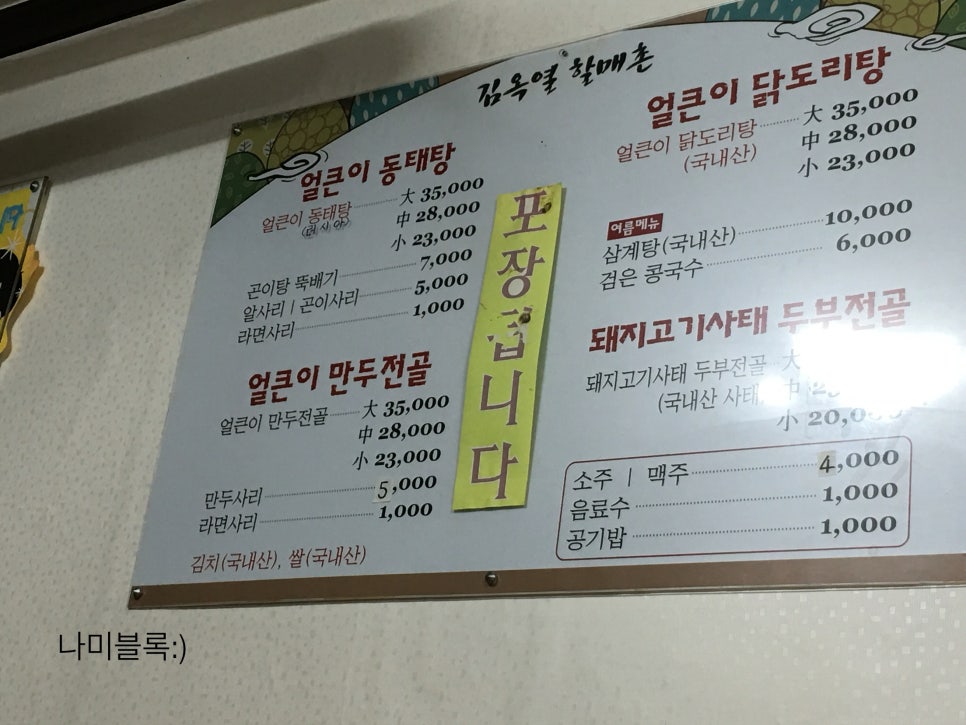 김옥열 할매촌
얼큰이 동태탕
얼큰이 동태탕 大 35,000
(러시아) 中 28,000
小 23,000
곤이탕 뚝배기 7,000
알사리 | 곤이사리 5,000
라면사리 1,000
얼큰이 만두전골
얼큰이 만두전골 大 35,000
中 28,000
小 23,000
만두사리 5,000
라면사리 1,000
김치(국내산), 쌀(국내산)
포장됩니다
얼큰이 닭도리탕
얼큰이 닭도리탕 大 35,000
(국내산) 中 28,000
小 23,000
여름메뉴
삼계탕(국내산) 10,000
검은 콩국수 6,000
돼지고기사태 두부전골
돼지고기사태 두부전골 大
(국내산 사태 中
小 20,000
소주 | 맥주 4,000
음료수 1,000
공기밥 1,000
나미블록:)